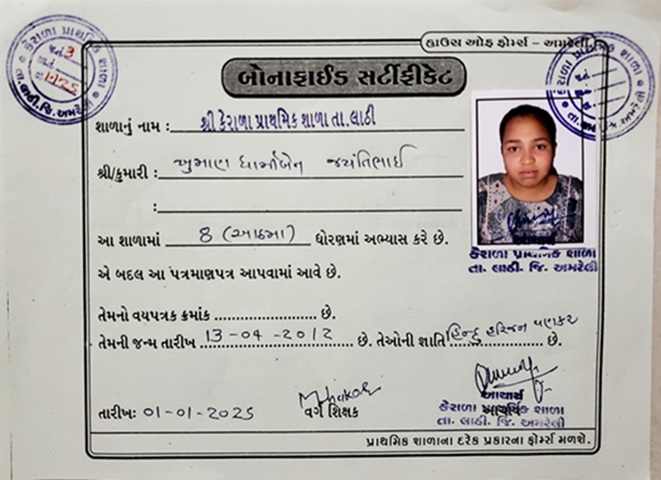 હાઉસ ઓફ ફોર્મ્સ - અમરેલી
બોનાફાઈડ સર્ટીફીકેટ
શાળાનું નામ : શ્રી કેરાળા પ્રાથમિક શાળા તા. લાઠી
શ્રી/કુમારી : ખુમાણ ધાર્મીબેન જયંતિભાઈ
:
આ શાળામાં 8 (આઠમા) ધોરણમાં અભ્યાસ કરે છે.
એ બદલ આ પત્રમાણપત્ર આપવામાં આવે છે.
તેમનો વયપત્રક ક્રમાંક ........................ છે.
તેમની જન્મ તારીખ 13-04-2012 છે. તેઓની જ્ઞાતિ હિન્દુ હરિજન વણકર છે.
કેરાળા પ્રાથમિક શાળા
તા. લાઠી. જિ. અમરેલી
તારીખઃ 01-01-2025
વર્ગ શિક્ષક
આચાર્ય
કેરાળા પ્રાથમિક શાળા
તા. લાઠી. જિ. અમરેલી
પ્રાથમિક શાળાના દરેક પ્રકારના ફોર્મ્સ મળશે.